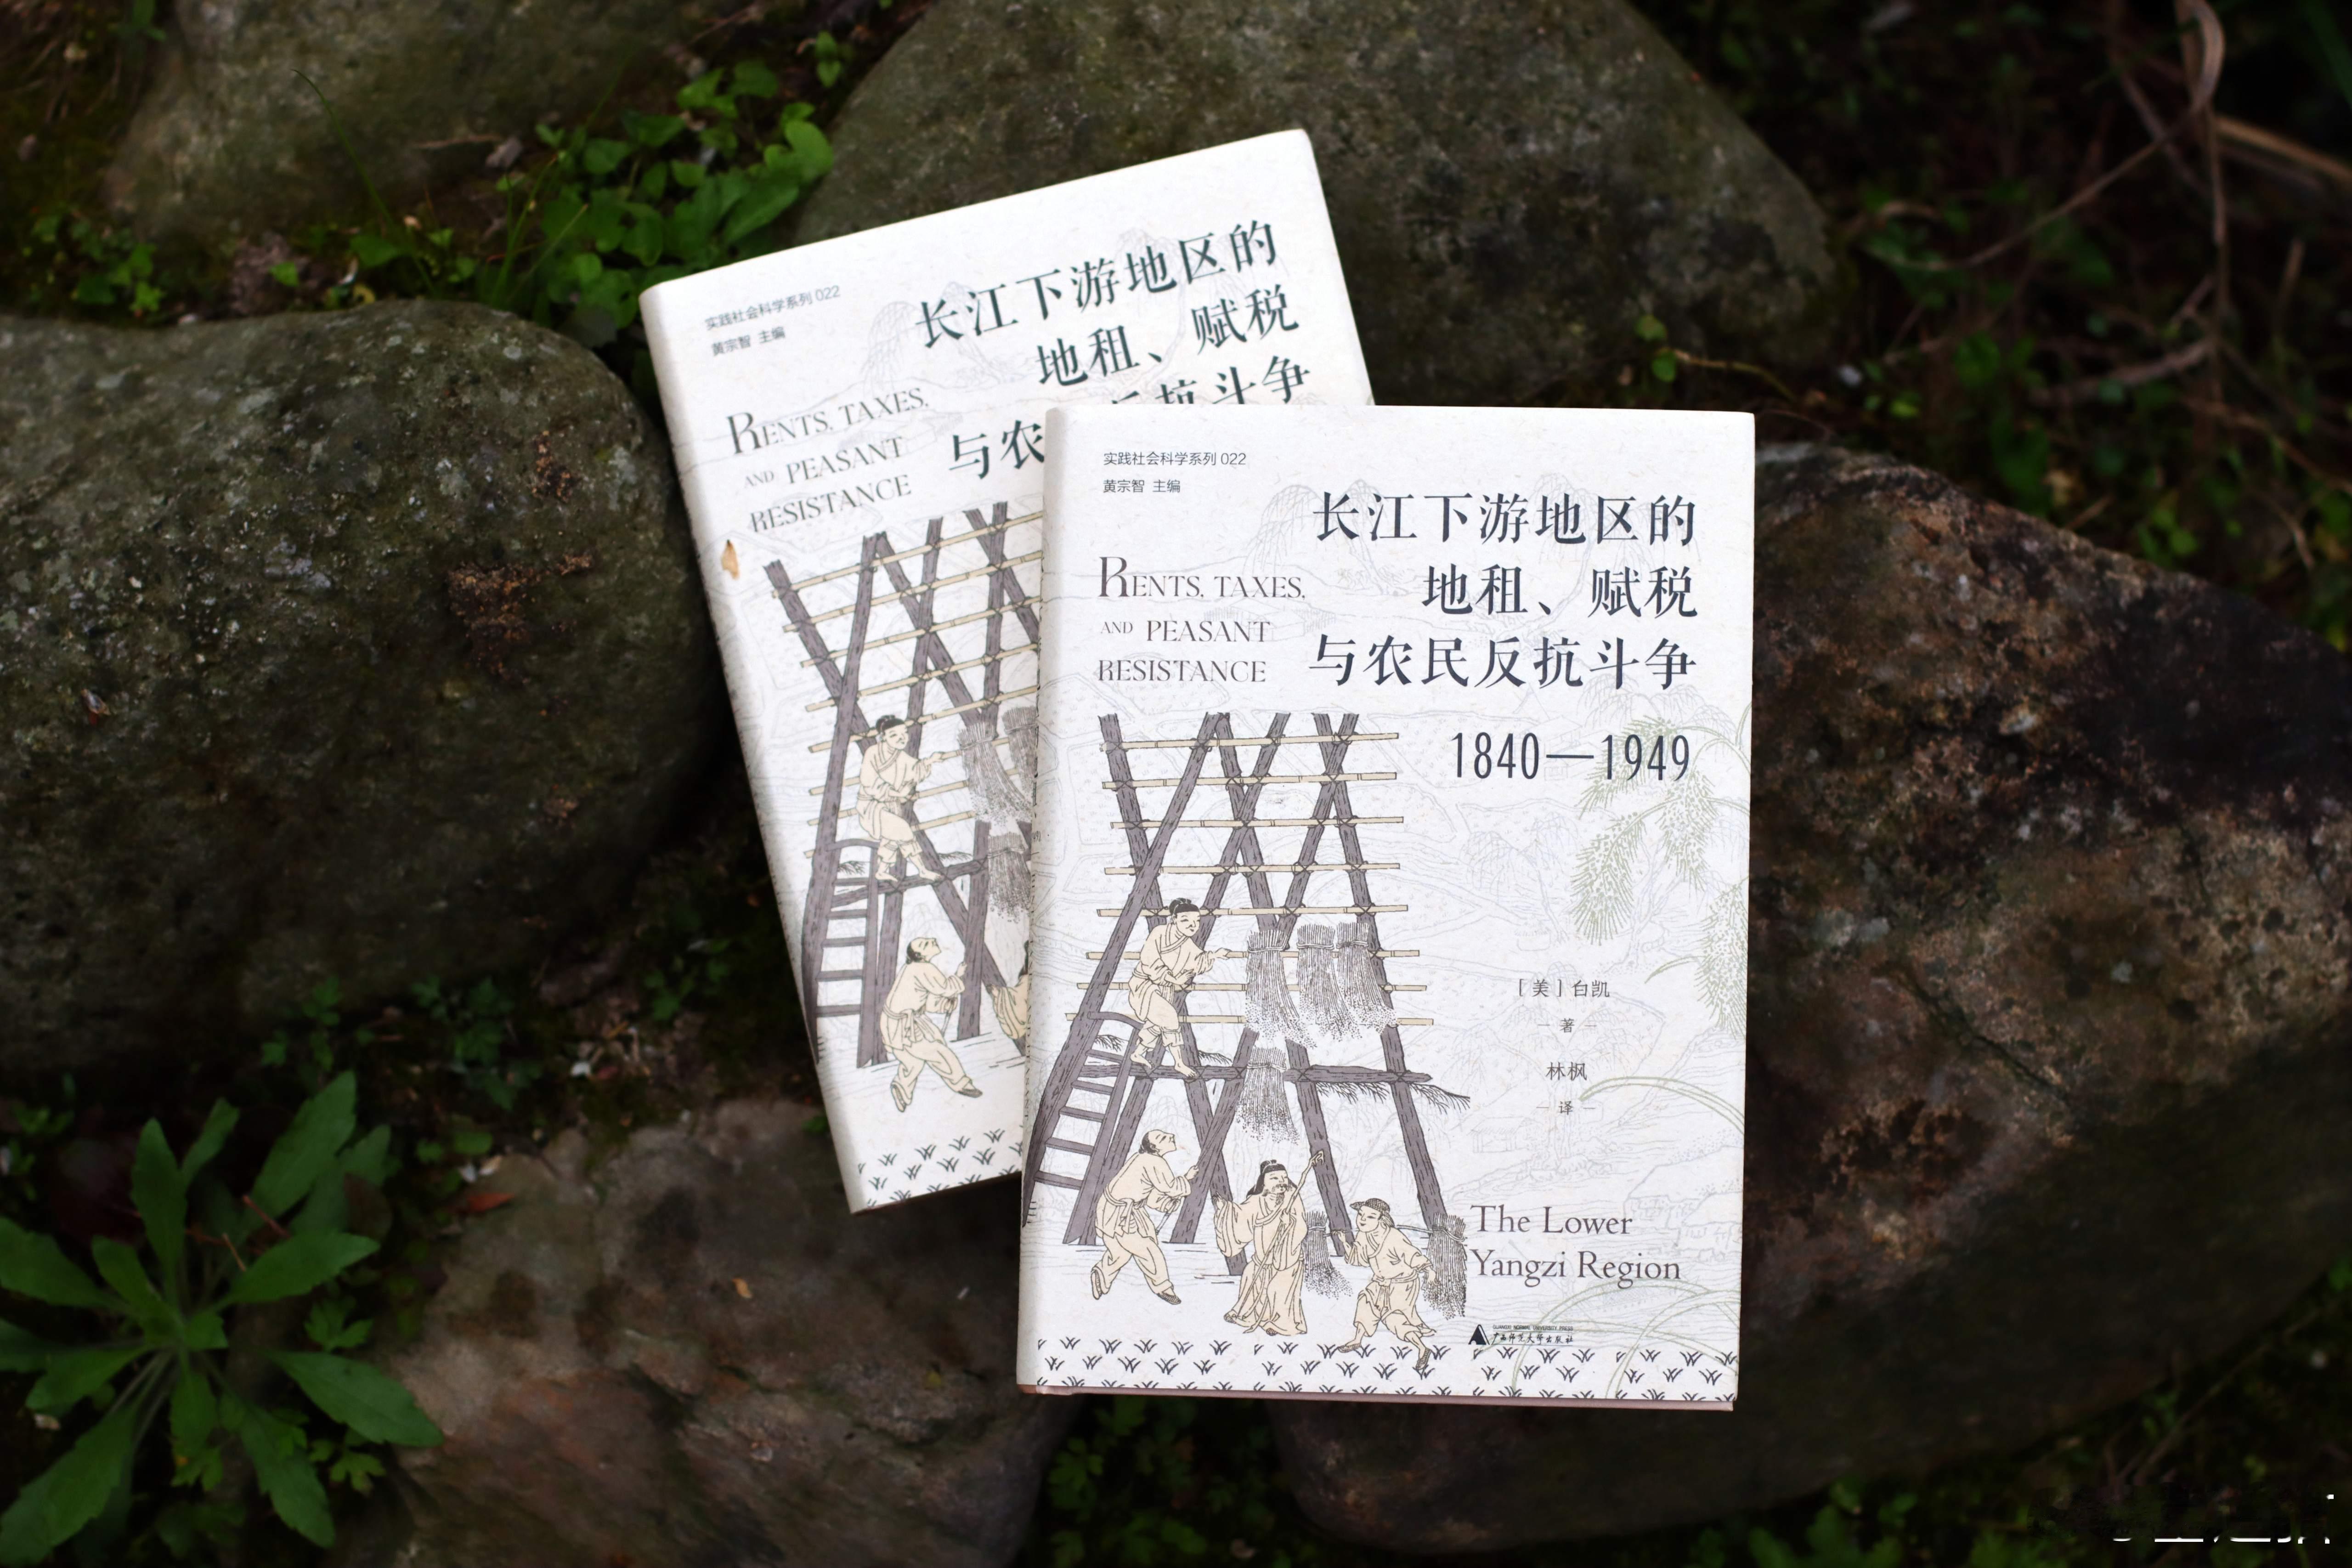 实践社会科学系列 022
黄宗智 主编
长江下游地区的
地租、赋税
反抗斗争
与农
RENTS, TAXES,
AND PEASANT
RESISTANCE
实践社会科学系列 022
黄宗智 主编
长江下游地区的
地租、赋税
与农民反抗斗争
1840—1949
RENTS, TAXES,
AND PEASANT
RESISTANCE
[美] 白凯
著
林枫
译
The Lower
Yangzi Region
GUANGXI NORMAL UNIVERSITY PRESS
广西师范大学出版社